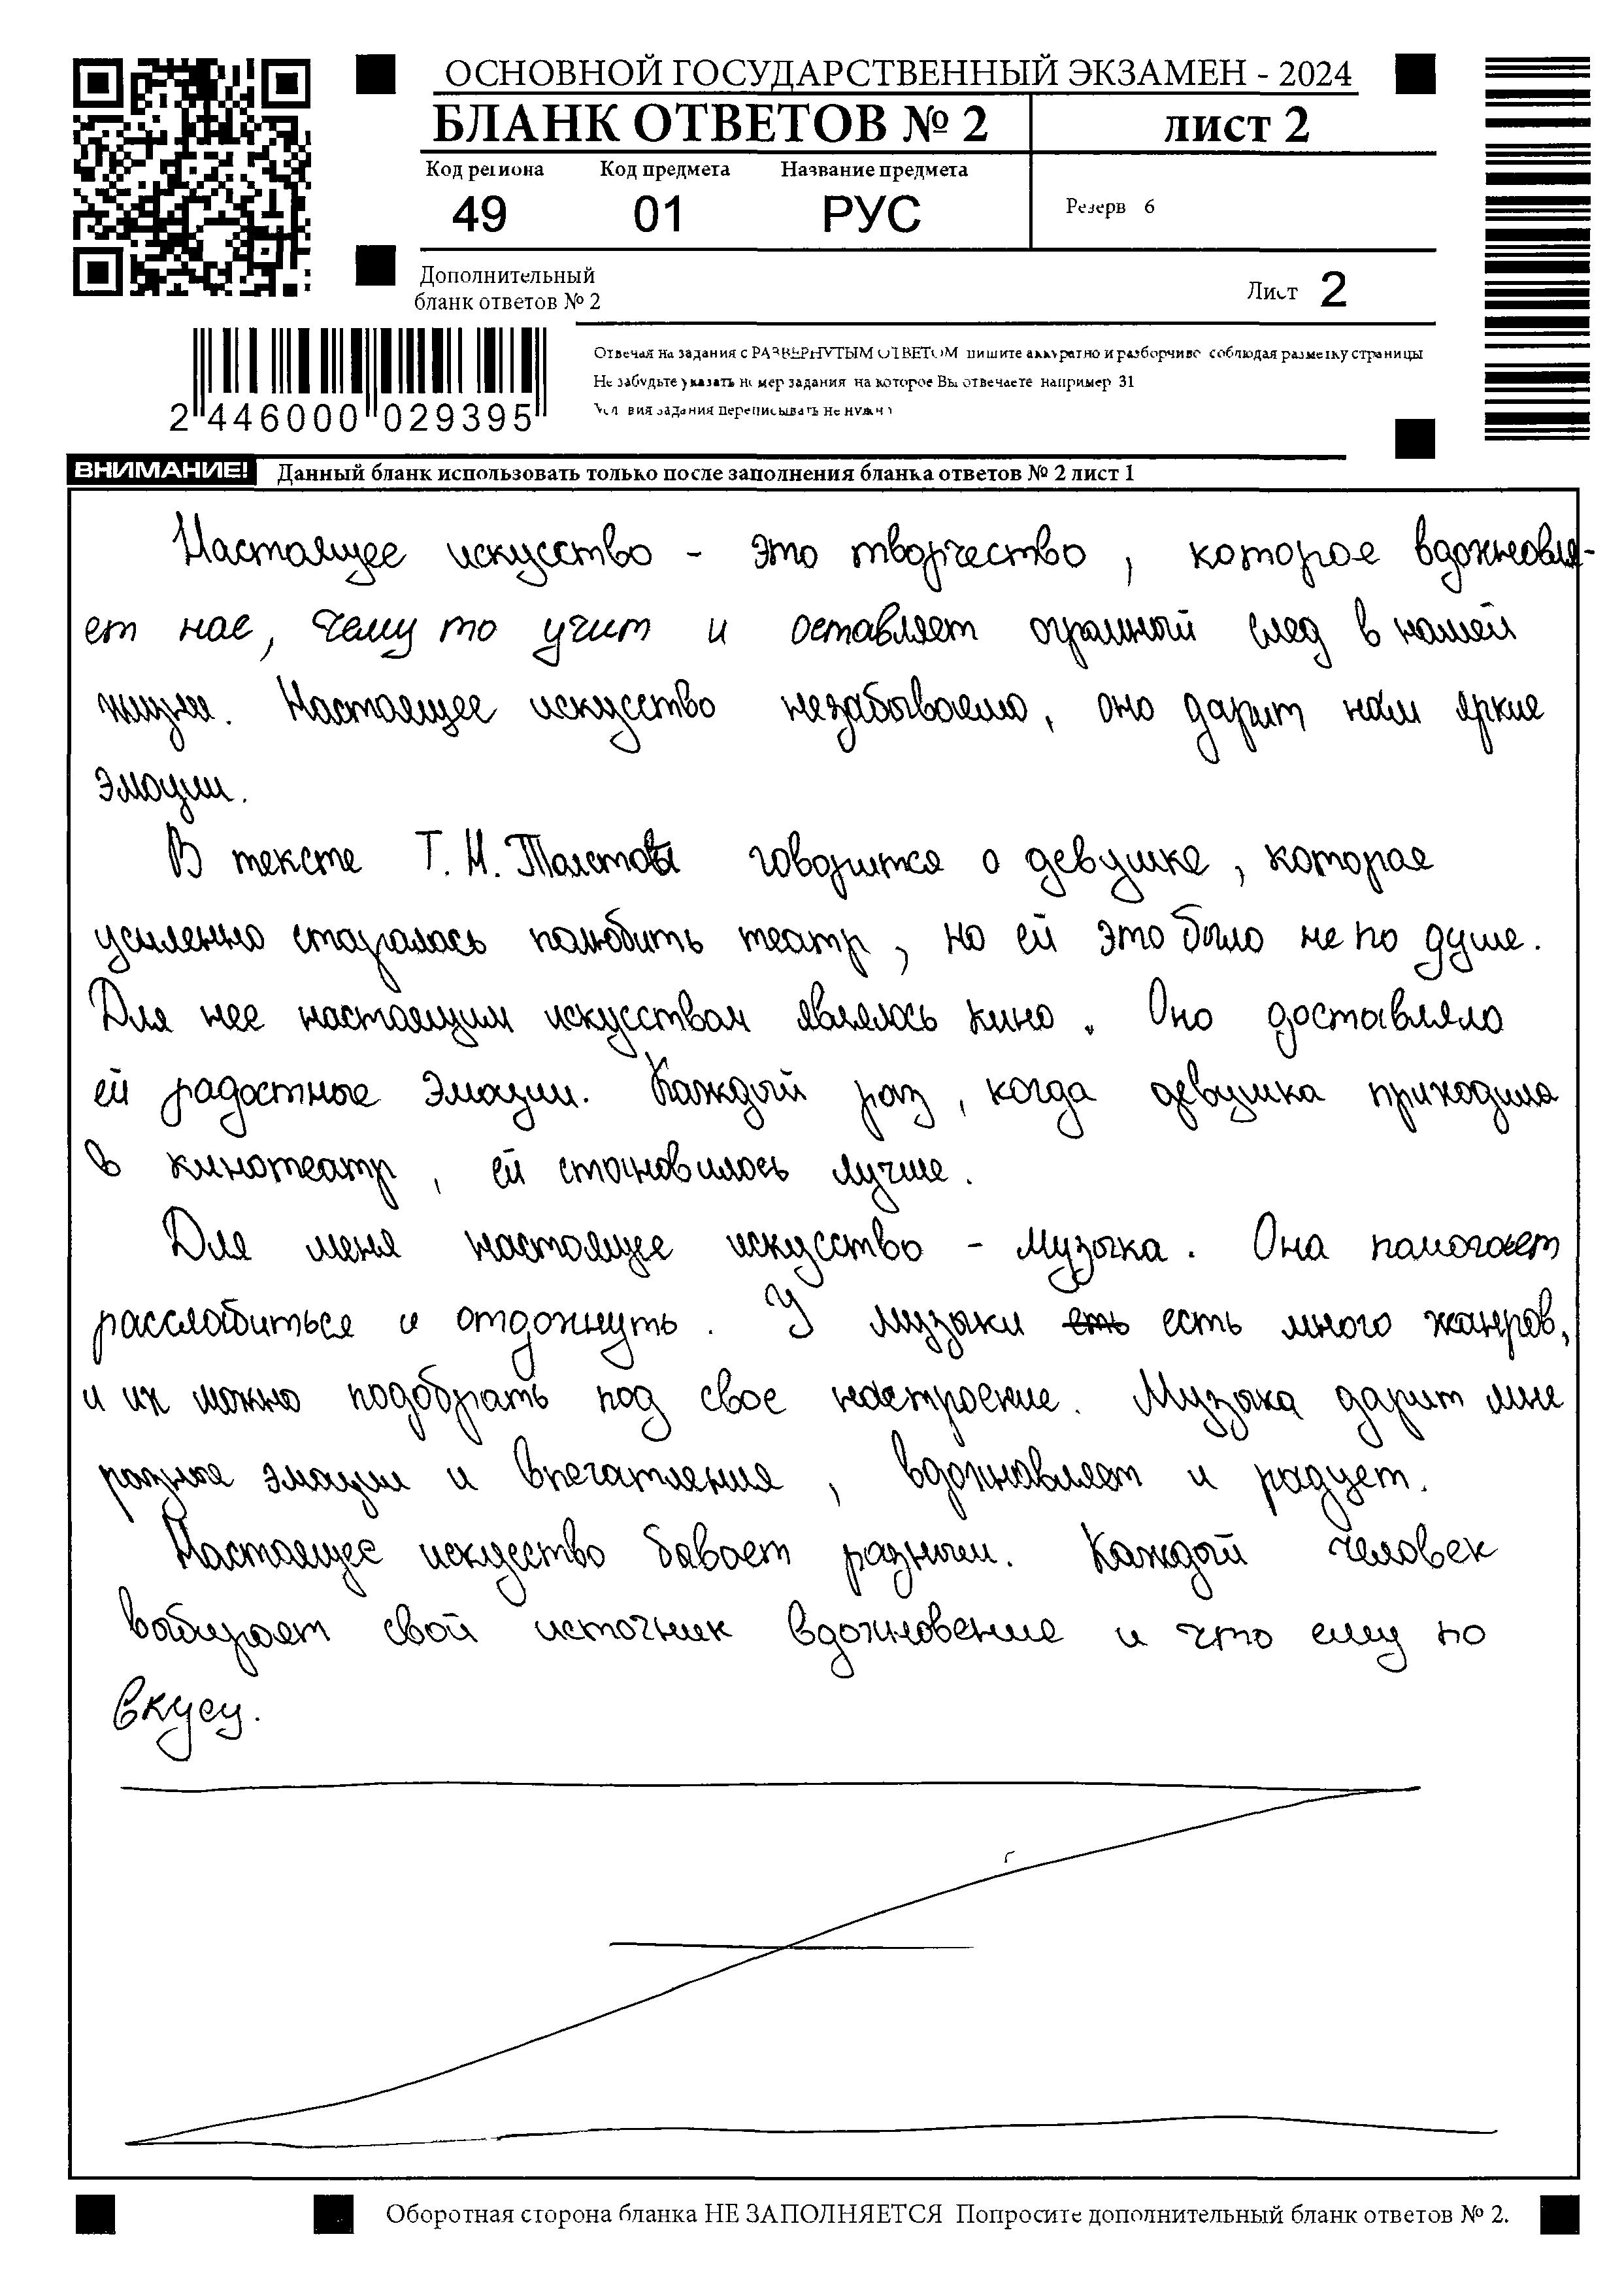 ОСНОВНОЙ ГОСУДАРСТВЕННЫЙ ЭКЗАМЕН - 2024
БЛАНК ОТВЕТОВ № 2 лист 2
Код региона Код предмета Название предмета
49 01 РУС
Резерв 6
Дополнительный
бланк ответов № 2
Лист 2
Отвечая на задания с РАЗВЕРНУТЫМ ОТВЕТОМ пишите аккуратно и разборчиво соблюдая разметку страницы
Не забудьте указать номер задания на которое Вы отвечаете например 31
Условия задания переписывать не нужно
2 446000 029395
ВНИМАНИЕ! Данный бланк использовать только после заполнения бланка ответов № 2 лист 1
Настоящее искусство - это творчество, которое вдохновля-
ет нас, чему то учит и оставляет огромный след в нашей
жизни. Настоящее искусство незабываемо, оно дарит нам яркие
эмоции.
В тексте Т. Н. Толстой говорится о девушке, которая
усиленно старалась полюбить театр, но ей это было не по душе.
Для нее настоящим искусством являлось кино. Оно доставляло
ей радостные эмоции. Каждый раз, когда девушка приходила
в кинотеатр, ей становилось лучше.
Для меня настоящее искусство - музыка. Она помогает
расслабиться и отдохнуть. У музыки есть много жанров,
и их можно подобрать под свое настроение. Музыка дарит мне
разные эмоции и впечатления, вдохновляет и радует.
Настоящее искусство бывает разным. Каждый человек
выбирает свой источник вдохновение и что ему по
вкусу.
Оборотная сторона бланка НЕ ЗАПОЛНЯЕТСЯ Попросите дополнительный бланк ответов № 2.